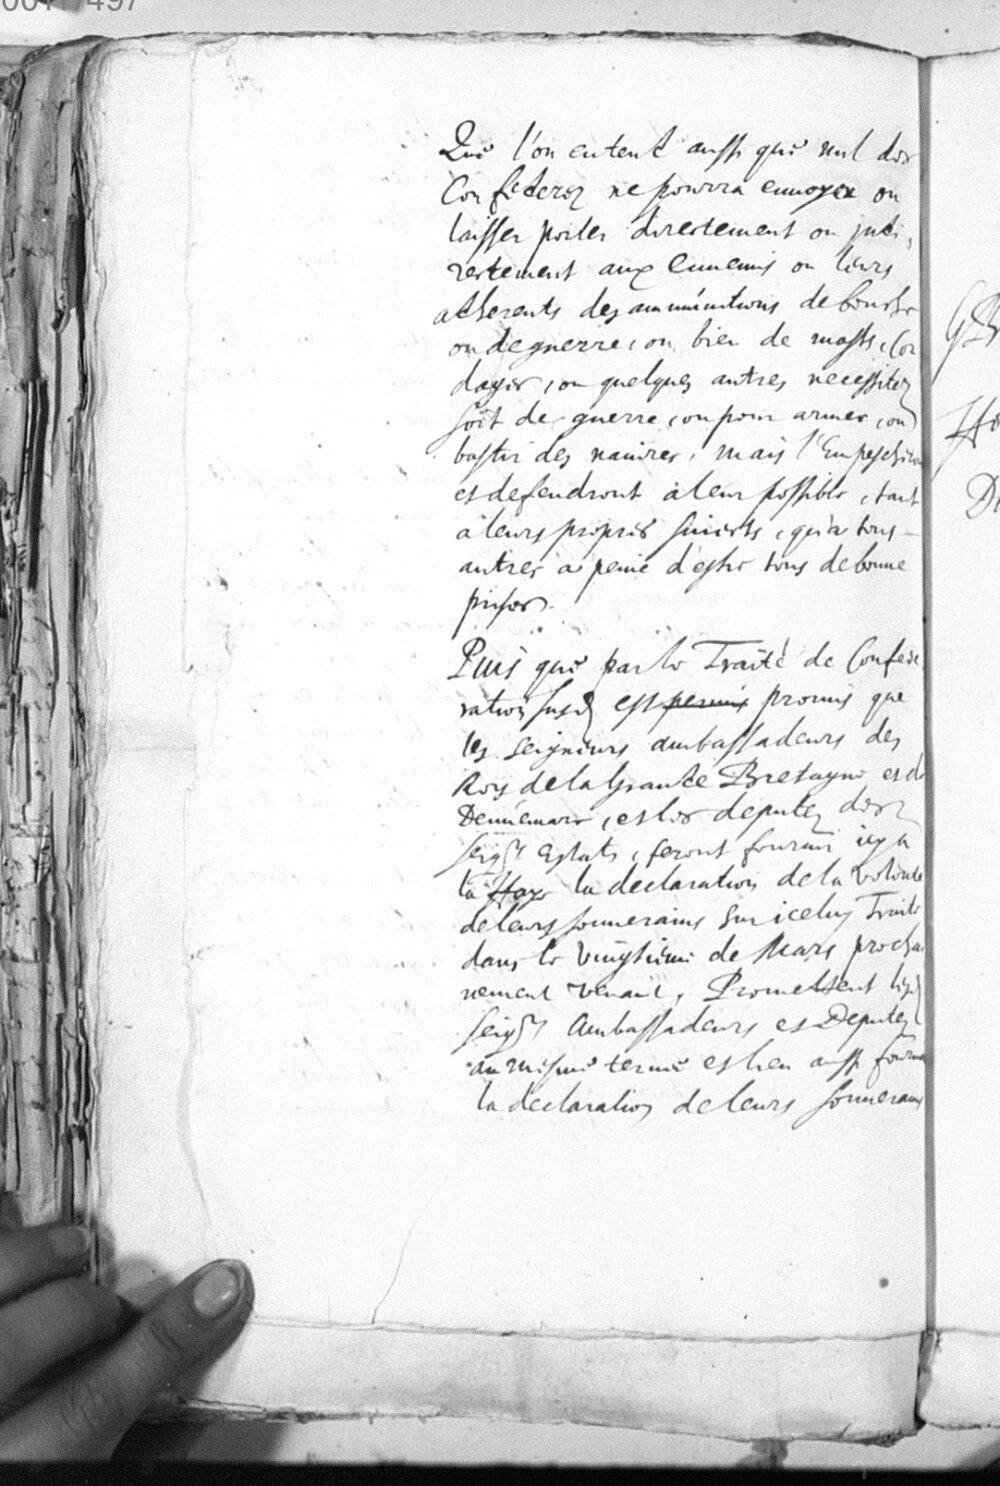 Que l'on entend aussi que nul des
Confederez ne pourra ennoyer ou
laisser porter directement ou indi,
rectement aux Ennemis ou leurs
adherents des ammunitions de bouche
ou de guerre, ou bien de masts, Cor
dages, ou quelques autres necessitez
soit de guerre, ou pour armer, ou
bastir des nauires, mais l'Empescheront
et defendront a leur possible, tant
a leurs propres suiects, qu'a tous
autres a peine d'estre tous de bonne
prise.
Puis que par le Traité de Confede
ration susd est permis promis que
les seigneurs ambassadeurs des
Roys de la Grande Bretagne et de
Dennemarc, et les deputez desd
seigrs Estats, feront fournir icy a
la Haye la declaration de la volonté
de leurs souuerains sur iceluy Traité
dans le vingtieme de Mars prochai
nement venant, Promettent lesd
seigrs Ambassadeurs et Deputez
au mesme terme et lieu aussi fournir
la declaration de leurs souuerains